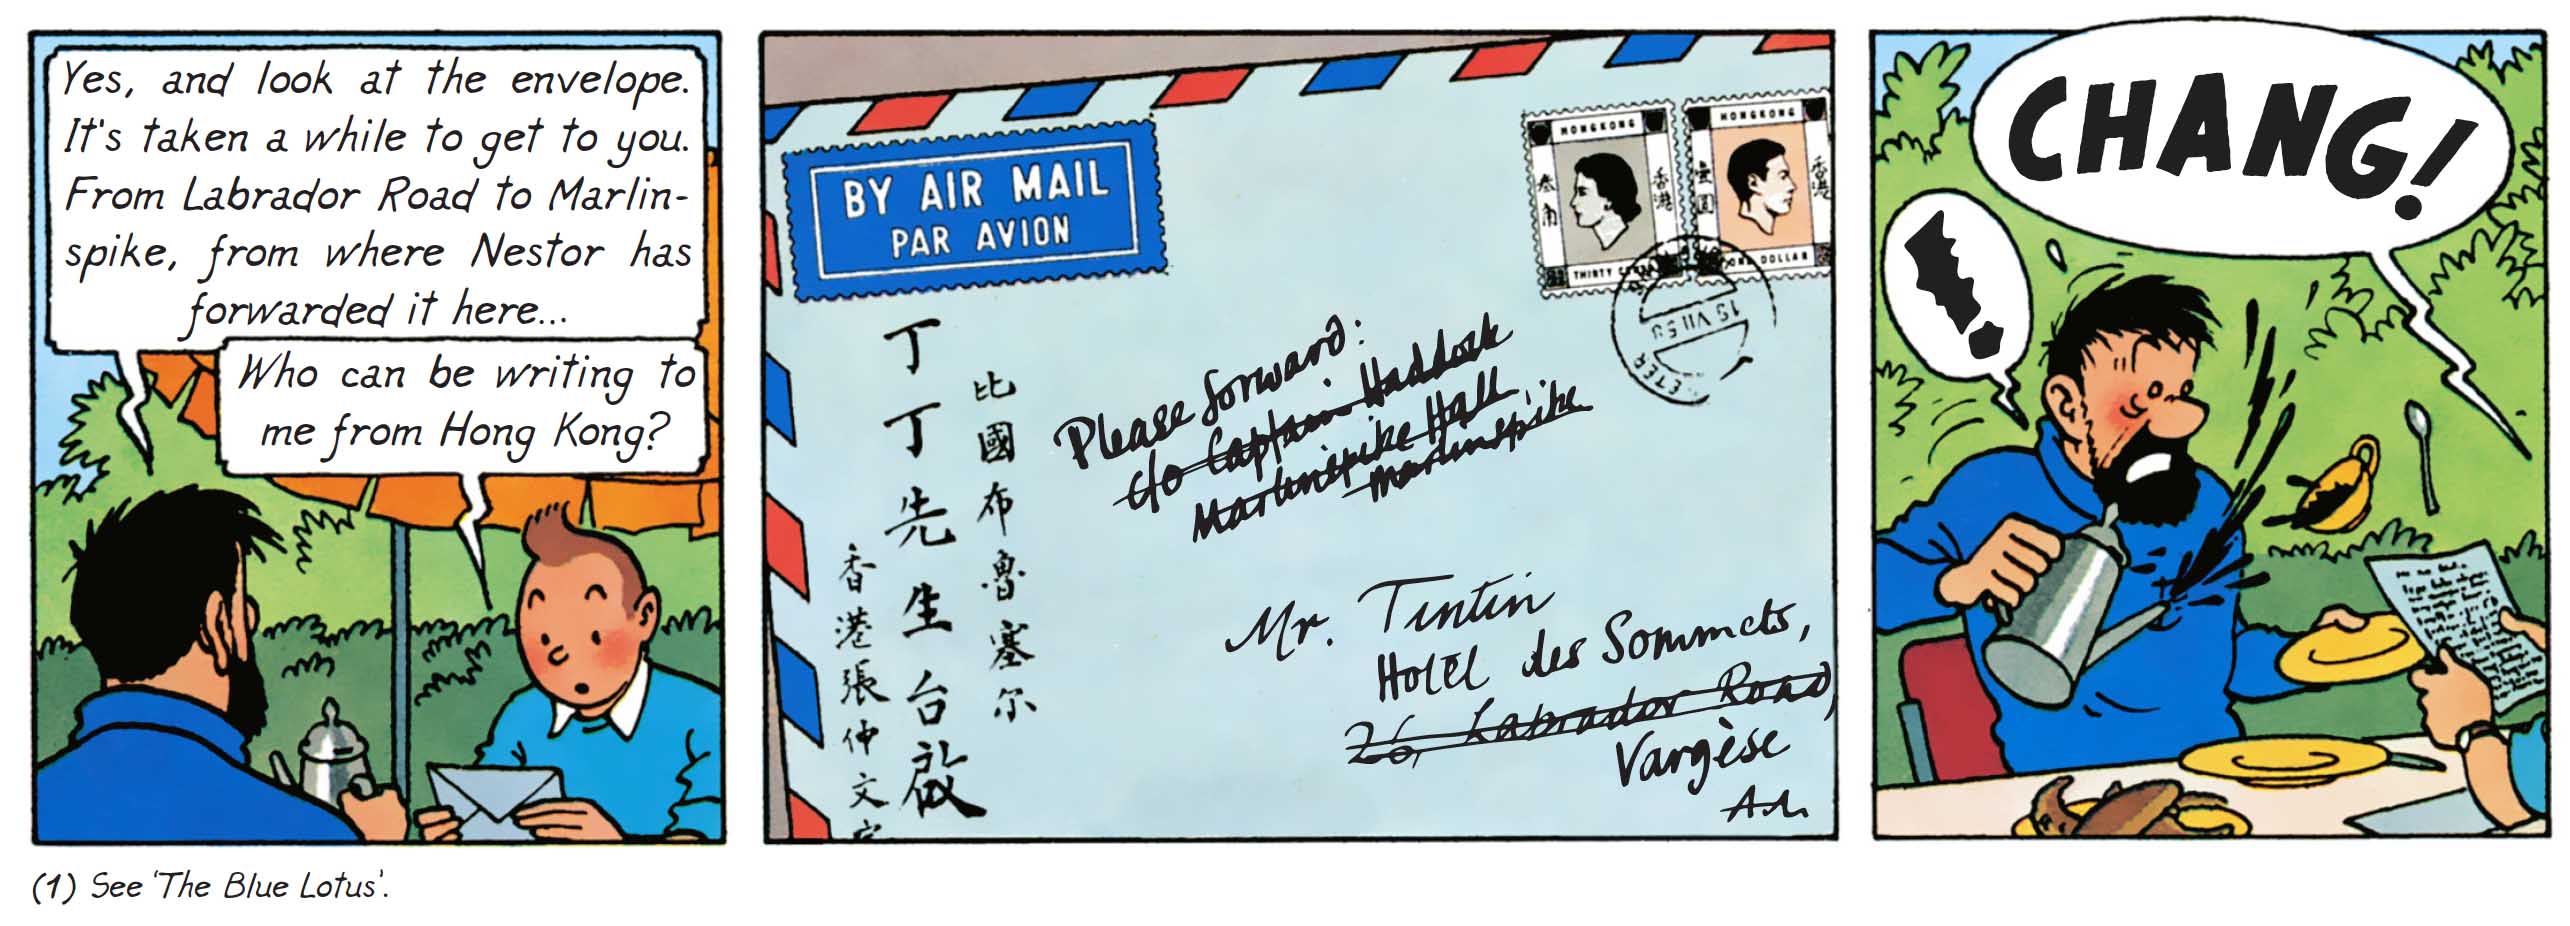 Yes, and look at the envelope.
It's taken a while to get to you.
From Labrador Road to Marlin-
spike, from where Nestor has
forwarded it here...
Who can be writing to
me from Hong Kong?
BY AIR MAIL
PAR AVION
HONGKONG
香港
THIRTY CENTS
HONGKONG
壹圓
香港
ONE DOLLAR
15 VII 58
比國布魯塞尔
丁丁先生台啟
香港張仲文
Please forward:
c/o Captain Haddock
Marlinspike Hall
Marlinspike
Mr. Tintin
Hotel des Sommets,
26, Labrador Road,
Vargèse
!
CHANG!
(1) See 'The Blue Lotus'.